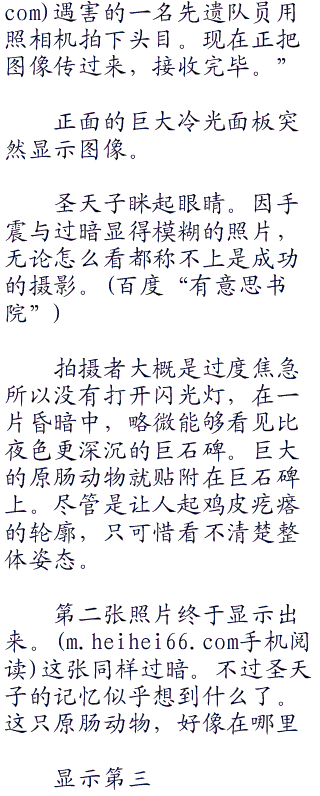 com)遇害的一名先遗队员用
照相机拍下头目。现在正把
图像传过来，接收完毕。”
正面的巨大冷光面板突
然显示图像。
圣天子眯起眼睛。因手
震与过暗显得模糊的照片，
无论怎么看都称不上是成功
的摄影。(百度“有意思书
院”)
拍摄者大概是过度焦急
所以没有打开闪光灯，在一
片昏暗中，略微能够看见比
夜色更深沉的巨石碑。巨大
的原肠动物就贴附在巨石碑
上。尽管是让人起鸡皮疙瘩
的轮廓，只可惜看不清楚整
体姿态。
第二张照片终于显示出
来。(m.heihei66.com手机阅
读)这张同样过暗。不过圣天
子的记忆似乎想到什么了。
这只原肠动物，好像在哪里
显示第三